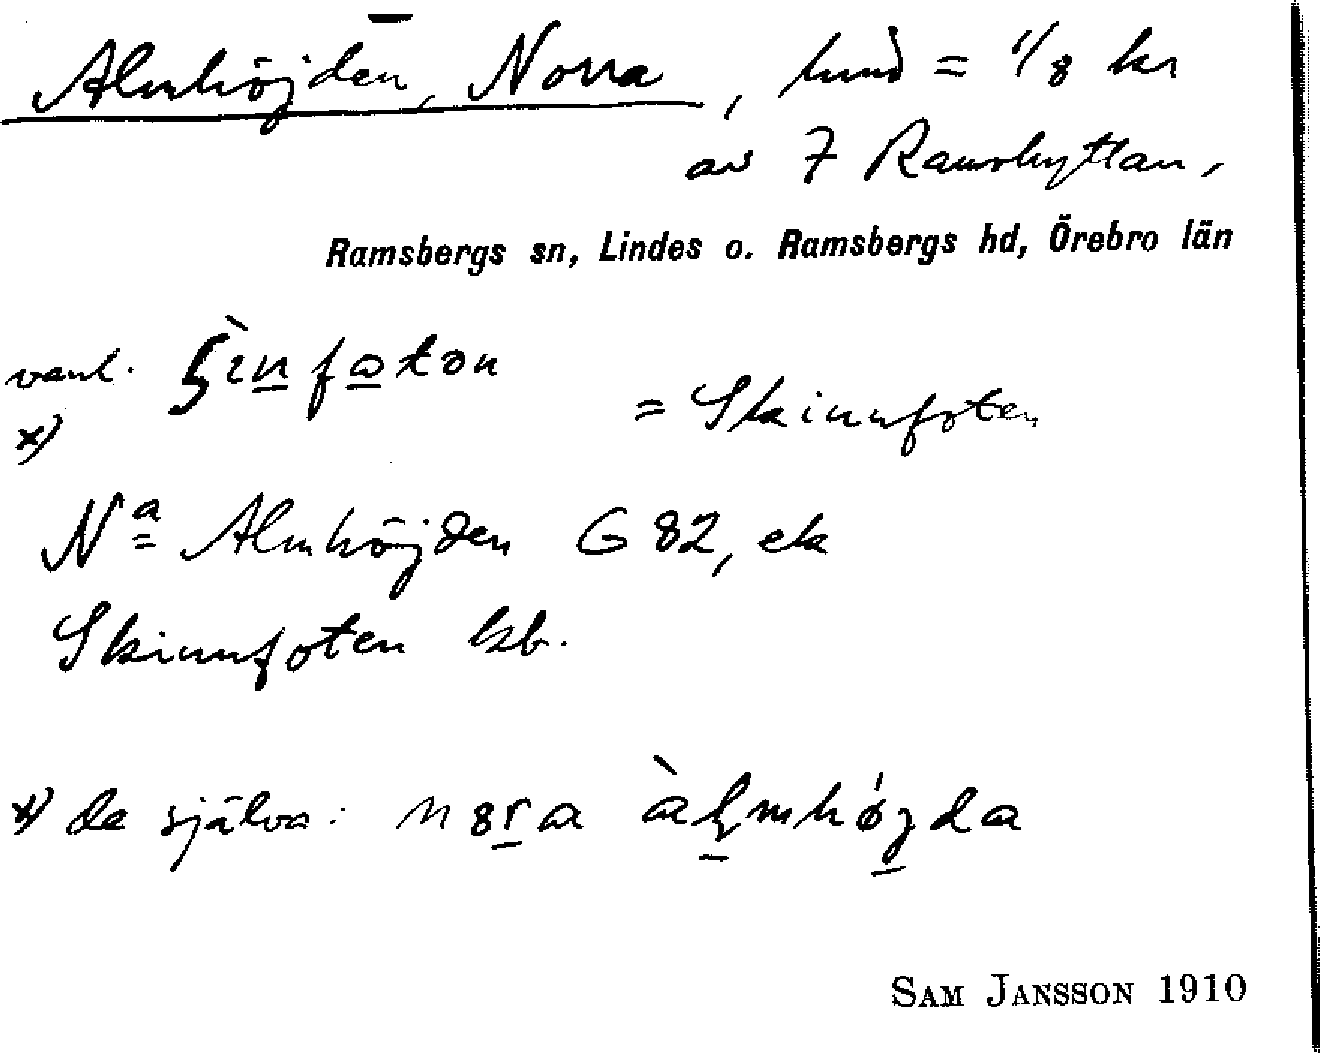 Almhöjden, Norra, hmd = 1/8 kr
av 7 Ramshyttan,
Ramsbergs sn, Lindes o. Ramsbergs hd, Örebro län
vanl.
x) = Skinnfoten
Nª Almhöjden G 82, ek
Skinnfoten kb.
x) de själva:
SAM JANSSON 1910